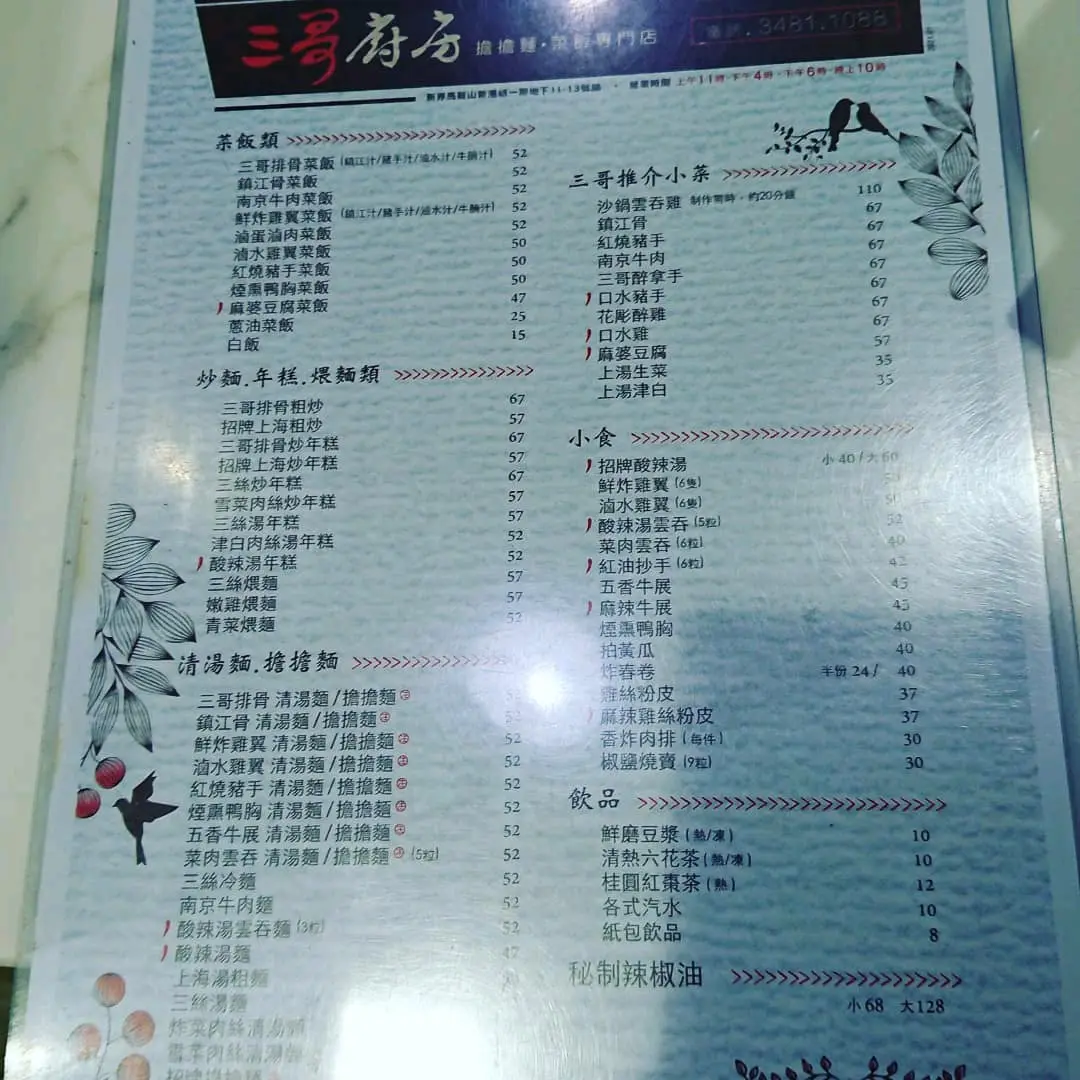 三哥廚房 擔擔麵·菜飯專門店 電話.3481.1088
新界馬鞍山新港城一期地下11-13號舖 · 營業時間 上午11時-下午4時·下午6時-晚上10時
菜飯類
三哥排骨菜飯 (鎮江汁/豬手汁/滷水汁/牛腩汁) 52
鎮江骨菜飯 52
南京牛肉菜飯 52
鮮炸雞翼菜飯 (鎮江汁/豬手汁/滷水汁/牛腩汁) 52
滷蛋滷肉菜飯 52
滷水雞翼菜飯 50
紅燒豬手菜飯 50
煙熏鴨胸菜飯 50
麻婆豆腐菜飯 47
蔥油菜飯 25
白飯 15
炒麵.年糕.煨麵類
三哥排骨粗炒 67
招牌上海粗炒 57
三哥排骨炒年糕 67
招牌上海炒年糕 57
三絲炒年糕 67
雪菜肉絲炒年糕 57
三絲湯年糕 57
津白肉絲湯年糕 52
酸辣湯年糕 52
三絲煨麵 57
嫩雞煨麵 57
青菜煨麵 52
清湯麵.擔擔麵
三哥排骨 清湯麵/擔擔麵 52
鎮江骨 清湯麵/擔擔麵 52
鮮炸雞翼 清湯麵/擔擔麵 52
滷水雞翼 清湯麵/擔擔麵 52
紅燒豬手 清湯麵/擔擔麵 52
煙熏鴨胸 清湯麵/擔擔麵 52
五香牛展 清湯麵/擔擔麵 52
菜肉雲吞 清湯麵/擔擔麵 (5粒) 52
三絲冷麵 52
南京牛肉麵 52
酸辣湯雲吞麵 (3粒) 52
酸辣湯麵 47
上海湯粗麵
三絲湯麵
炸菜肉絲清湯麵
雪菜肉絲清湯麵
招牌擔擔麵
三哥推介小菜
沙鍋雲吞雞 制作需時,約20分鐘 110
鎮江骨 67
紅燒豬手 67
南京牛肉 67
三哥醉拿手 67
口水豬手 67
花彫醉雞 67
口水雞 67
麻婆豆腐 57
上湯生菜 35
上湯津白 35
小食
招牌酸辣湯 小 40 / 大 60
鮮炸雞翼 (6隻) 50
滷水雞翼 (6隻) 50
酸辣湯雲吞 (5粒) 52
菜肉雲吞 (6粒) 40
紅油抄手 (6粒) 42
五香牛展 45
麻辣牛展 45
煙熏鴨胸 40
拍黃瓜 40
炸春卷 半份 24 / 40
雞絲粉皮 37
麻辣雞絲粉皮 37
香炸肉排 (每件) 30
椒鹽燒賣 (9粒) 30
飲品
鮮磨豆漿 (熱/凍) 10
清熱六花茶 (熱/凍) 10
桂圓紅棗茶 (熱) 12
各式汽水 10
紙包飲品 8
秘制辣椒油
小 68 大 128